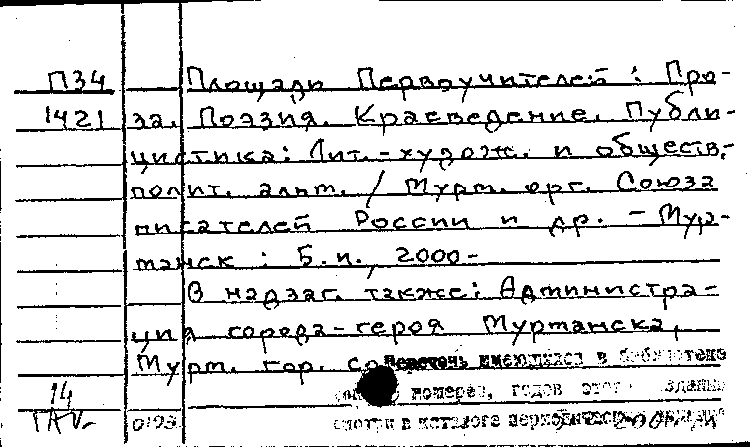 П34 Площадь Первоучителей : Про-
1421 за. Поэзия. Краеведение. Публи-
цистика: Лит.-худож. и обществ.-
полит. альм. / Мурм. орг. Союза
писателей России и др. - Мур-
манск : Б.и., 2000-
В надзаг. также: Администра-
ция города-героя Мурманска,
Мурм. гор. со Перечень имеющихся в библиотеке
14 номеров, годов этого издания
0193 смотри в каталоге